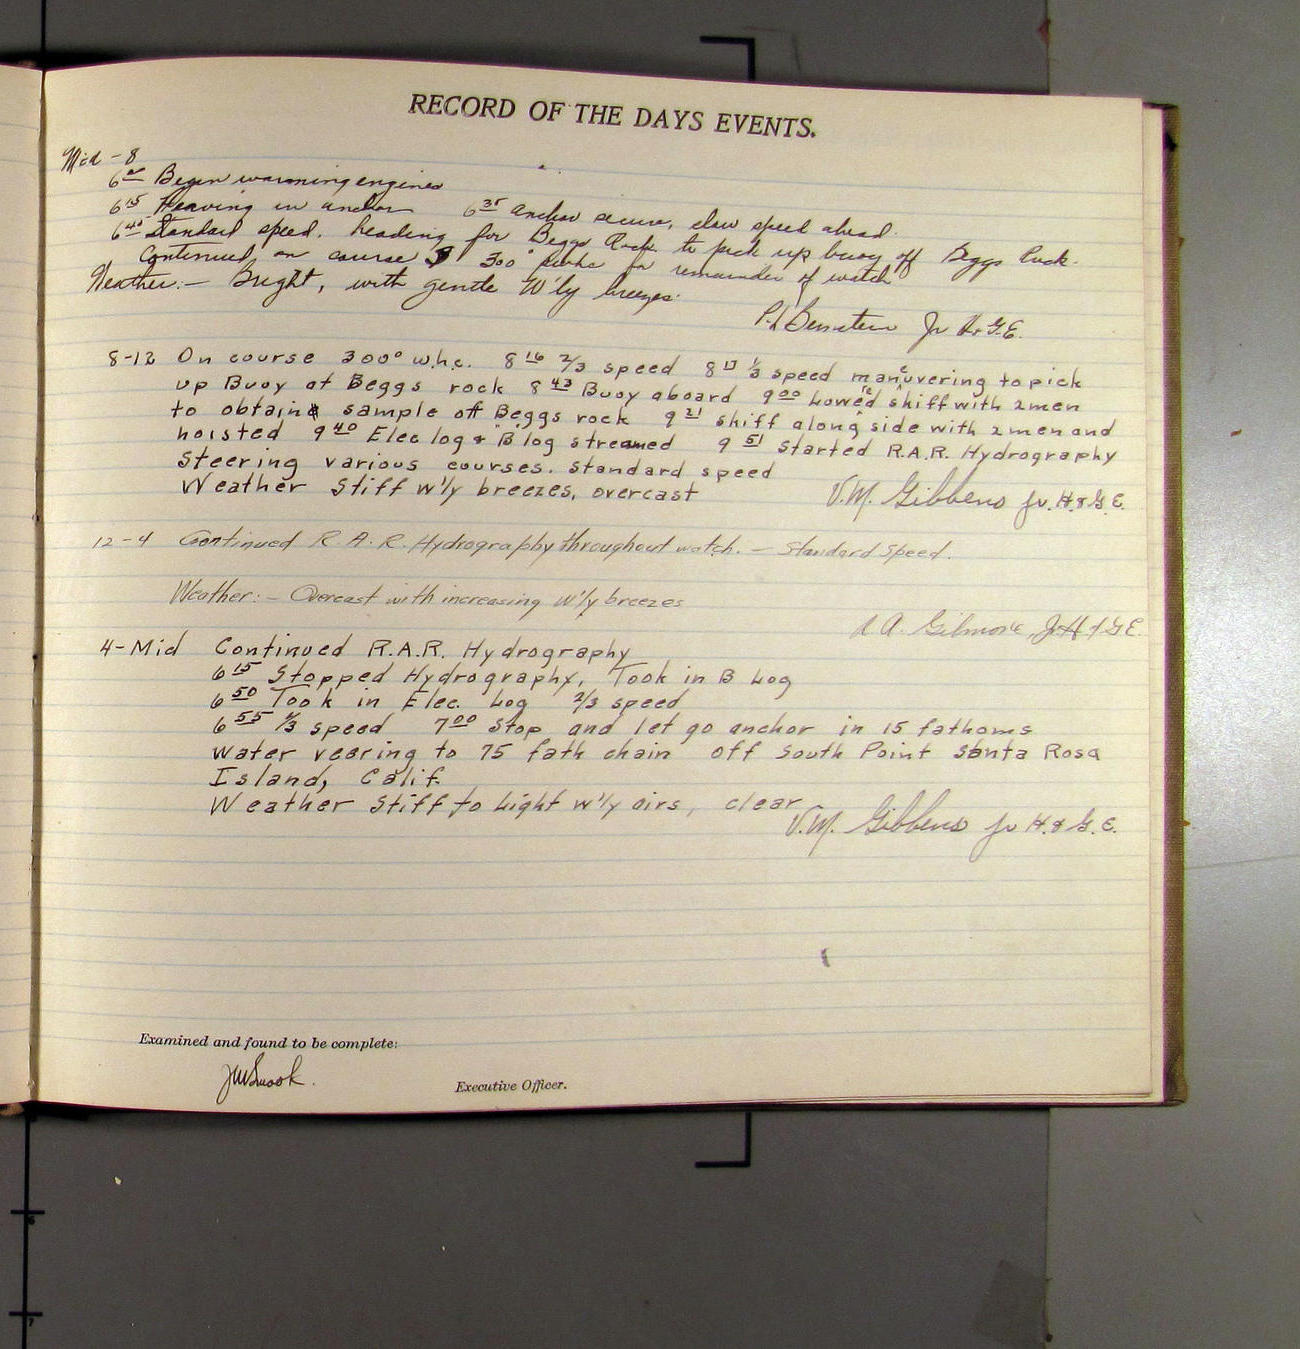 RECORD OF THE DAYS EVENTS.
Mid - 8
6 00 Began warming engines
6 15 Heaving in anchor 6 35 anchor secure, slow speed ahead.
6 40 Standard speed. heading for Beggs Rock to pick up buoy off Beggs Rock.
Continued on course 300° pwhc for remainder of watch
Weather:- Bright, with gentle W'ly breezes.
Bernstein Jr H.&G.E.
8-12 On course 300° w.h.c. 8 16 2/3 speed 8 17 1/3 speed maneuvering to pick
up Buoy at Beggs rock 8 43 Buoy aboard 9 00 Lowered skiff with 2 men
to obtain sample off Beggs rock 9 21 skiff along side with 2 men and
hoisted 9 40 Elec log & "B" log streamed 9 51 Started R.A.R. Hydrography
Steering various courses. Standard speed
Weather Stiff w'ly breezes, overcast
V.M. Gibbens Jr. H.&G.E.
12-4 Continued R.A.R. Hydrography throughout watch. - Standard Speed.
Weather:- Overcast with increasing W'ly breezes
A. Gilmore, Jr H & G E.
4-Mid Continued R.A.R. Hydrography
6 15 Stopped Hydrography, Took in B Log
6 50 Took in Elec. Log 2/3 speed
6 55 1/3 speed 7 00 Stop and let go anchor in 15 fathoms
Water veering to 75 fath chain off South Point Santa Rosa
Island, Calif.
Weather Stiff to Light w'ly airs, clear
V.M. Gibbens Jr H.&G.E.
Examined and found to be complete:
Executive Officer.